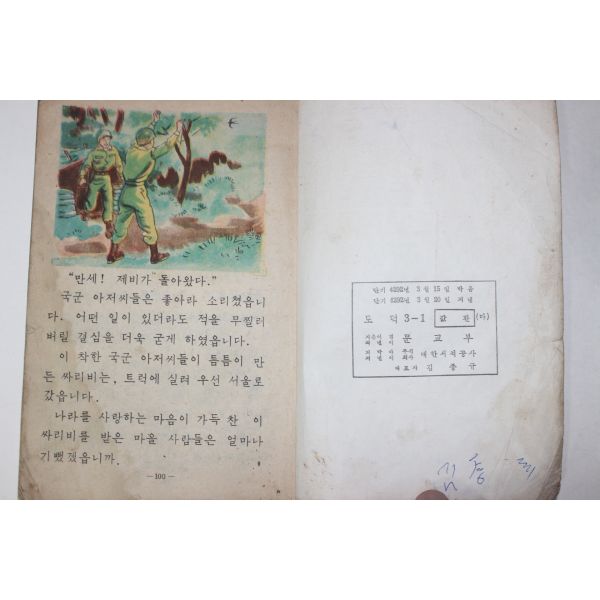 "만세! 제비가 돌아왔다."
국군 아저씨들은 좋아라 소리쳤읍니
다. 어떤 일이 있더라도 적을 무찔러
버릴 결심을 더욱 굳게 하였읍니다.
이 착한 국군 아저씨들이 틈틈이 만
든 싸리비는, 트럭에 실려 우선 서울로
갔읍니다.
나라를 사랑하는 마음이 가득 찬 이
싸리비를 받은 마을 사람들은 얼마나
기뻤겠읍니까.
— 100 —
단기 4292년 3월 15일 박음
단기 4292년 3월 20일 펴냄
도덕 3-1 값 환 (다)
지은이 겸 펴낸이 문교부
박아 펴낸이 주식 회사 대한서적공사
대표자 김종규